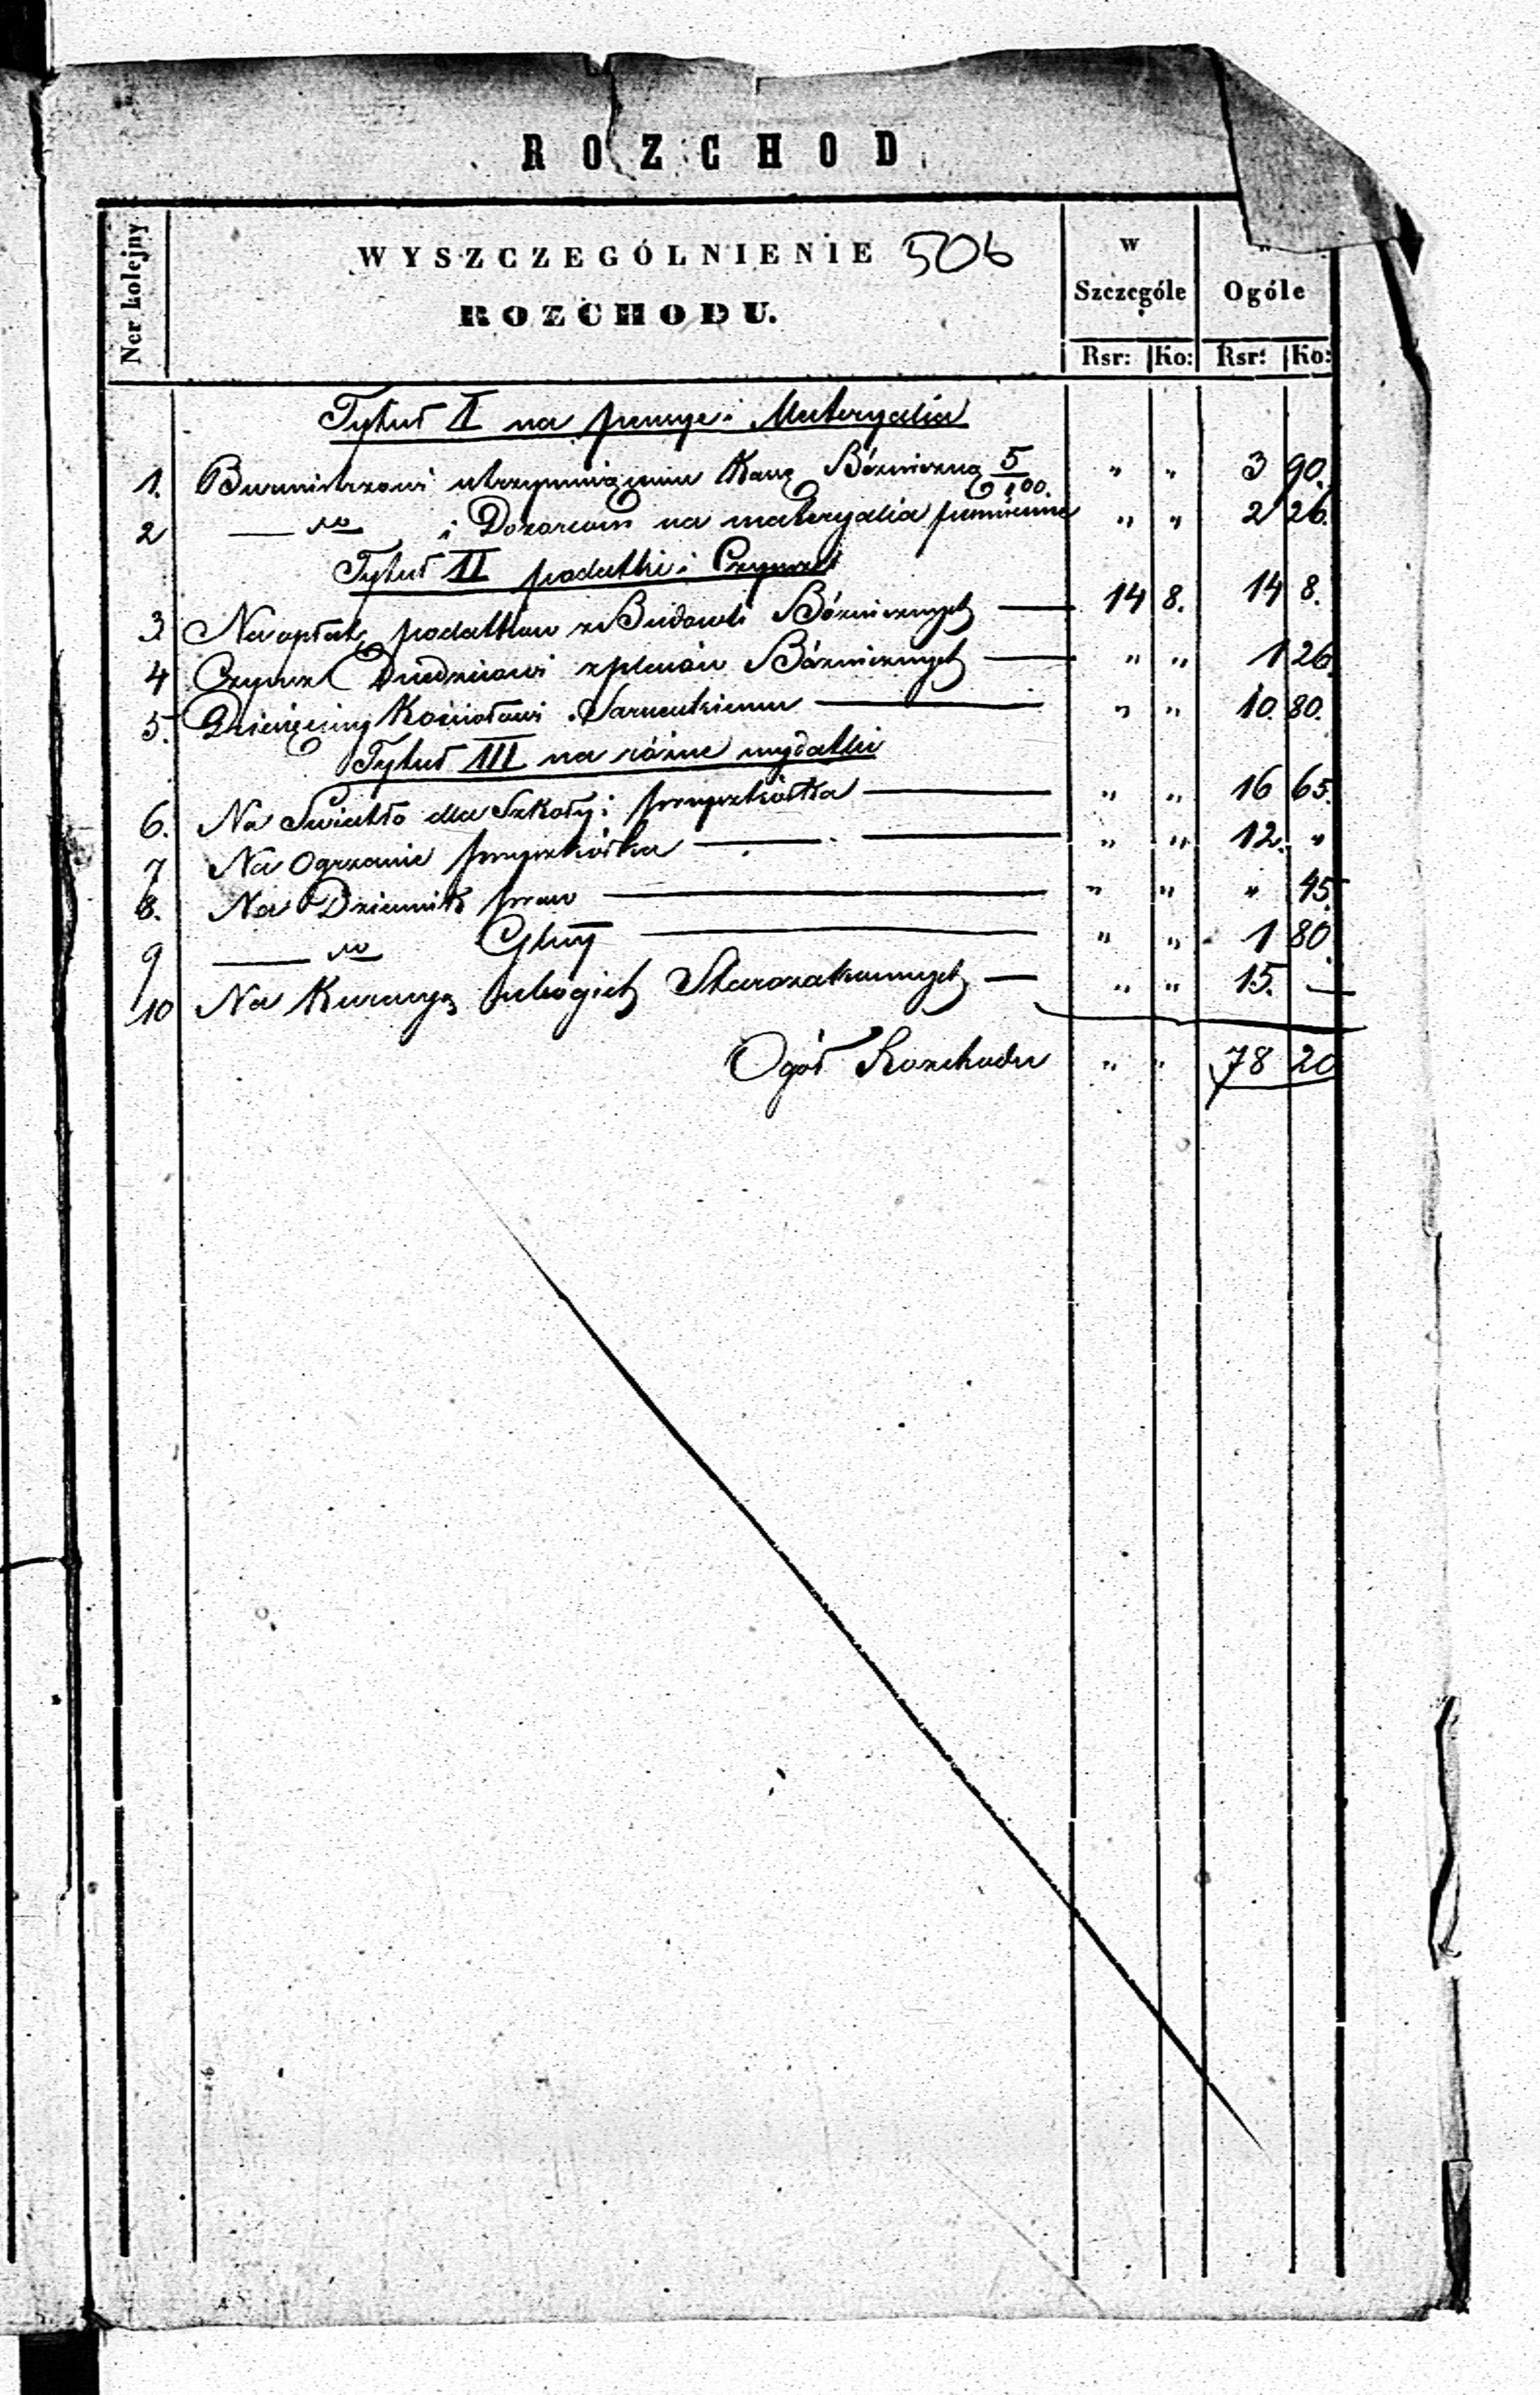 ROZCHOD
Ner kolejny
WYSZCZEGÓLNIENIE 506
ROZCHODU.
w Szczególe
Ogóle
Rsr: Ko: Rsr: Ko:
Tytuł I na pensye i Materyalia
1. Burmistrzowi utrzymującemu Kassę Bóżniczną 5/100. " " 3 90.
2 — do i Dozorcom na materyalia piśmienne " " 2 26.
Tytuł II podatki i Czynsze
3. Na opłatę podatków z Budowli Bóżnicznych — 14 8. 14 8.
4 Czynsz Dziedzicowi z placów Bóżnicznych — " " 1 26
5. Dziesięciny Kościołowi — " " 10. 80.
Tytuł III na różne wydatki
6. Na Światło dla Szkoły i przyszkółka — " " 16 65.
7 Na Ogrzanie przyszkółka — " " 12. "
8. Na Dziennik praw — " " " 45.
9 — do — " " 1 80
10 Na Kuracyą ubogich Starozakonnych — " " 15. —
Ogół Rozchodu " " 78 20